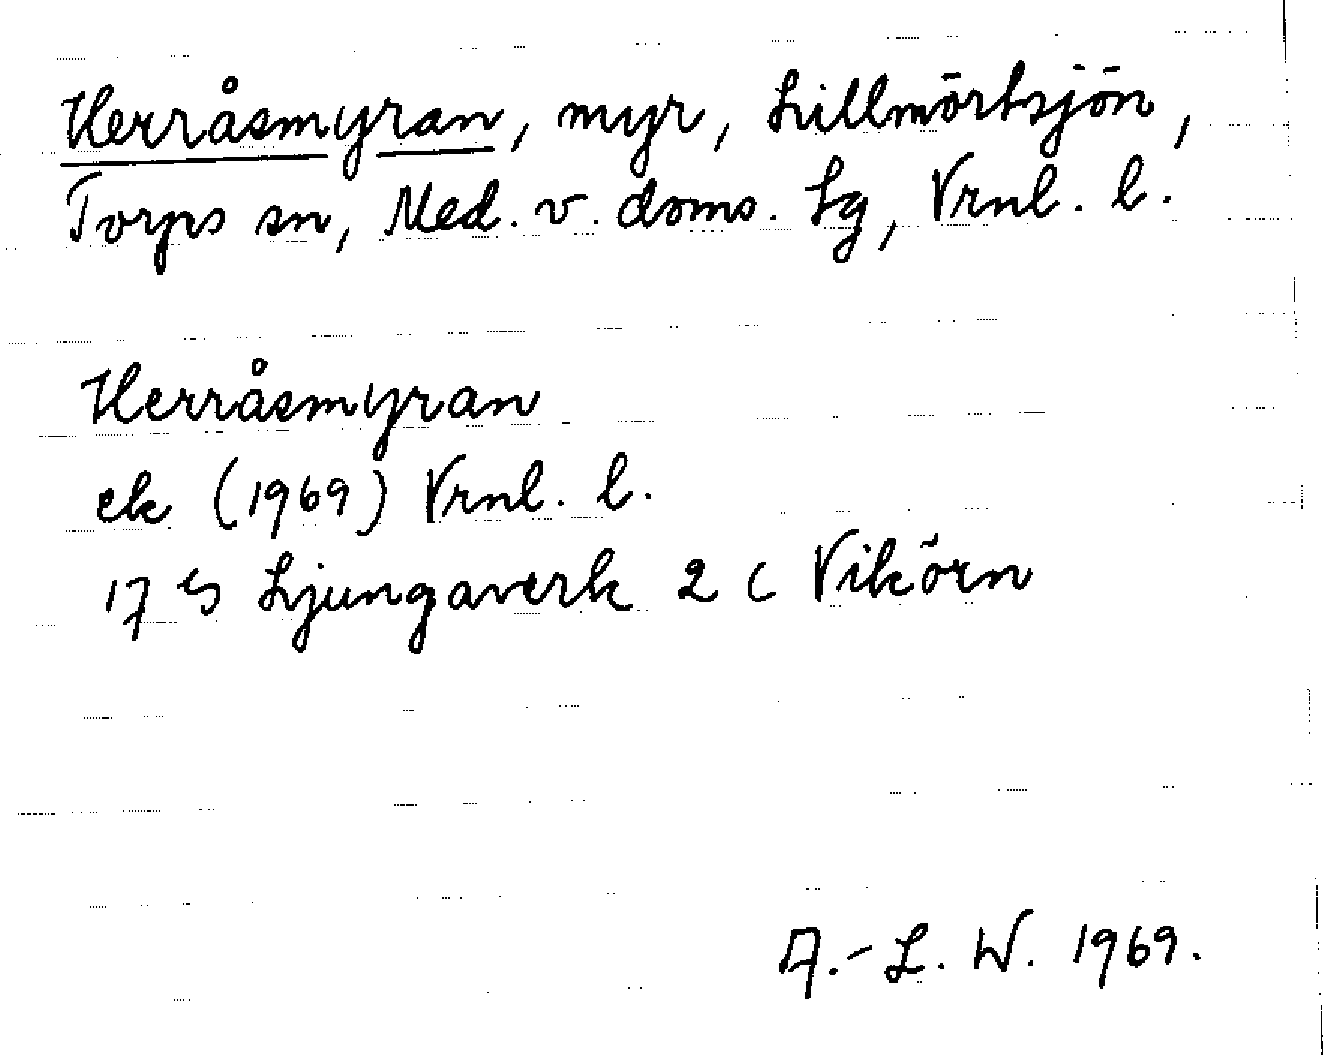 Herråsmyran, myr, Lillmörtsjön,
Torps sn, Med. v. doms. lg, Vrnl. l.
Herråsmyran
ek (1969) Vrnl. l.
17 G Ljungaverk 2 c Vikörn
A.-L. W. 1969.